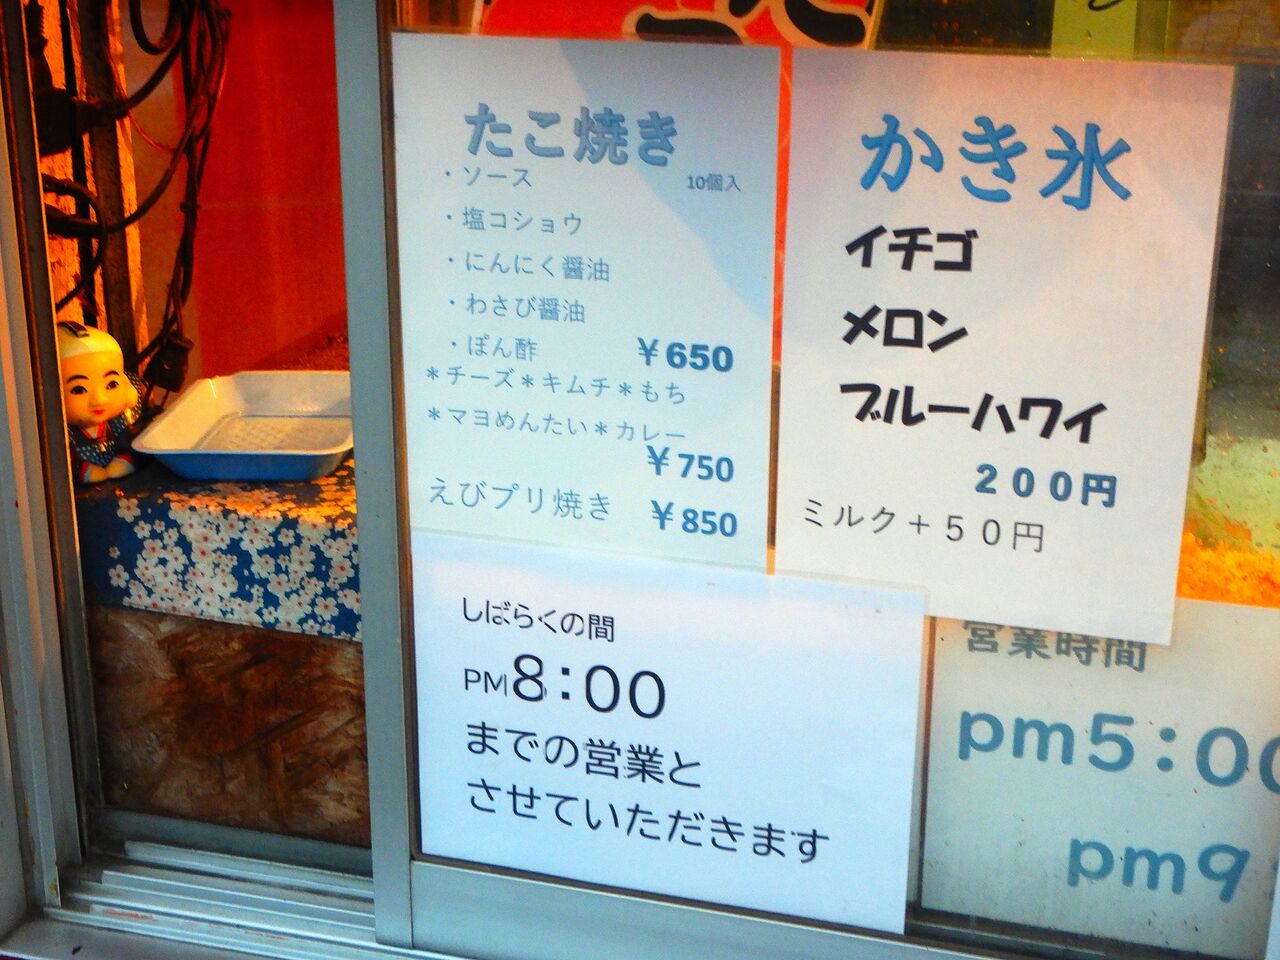 たこ焼き
・ソース 10個入
・塩コショウ
・にんにく醤油
・わさび醤油
・ぽん酢 ¥650
＊チーズ＊キムチ＊もち
＊マヨめんたい＊カレー
¥750
えびプリ焼き ¥850
かき氷
イチゴ
メロン
ブルーハワイ
２００円
ミルク＋５０円
しばらくの間
PM8:00
までの営業と
させていただきます
営業時間
pm5:00
pm9